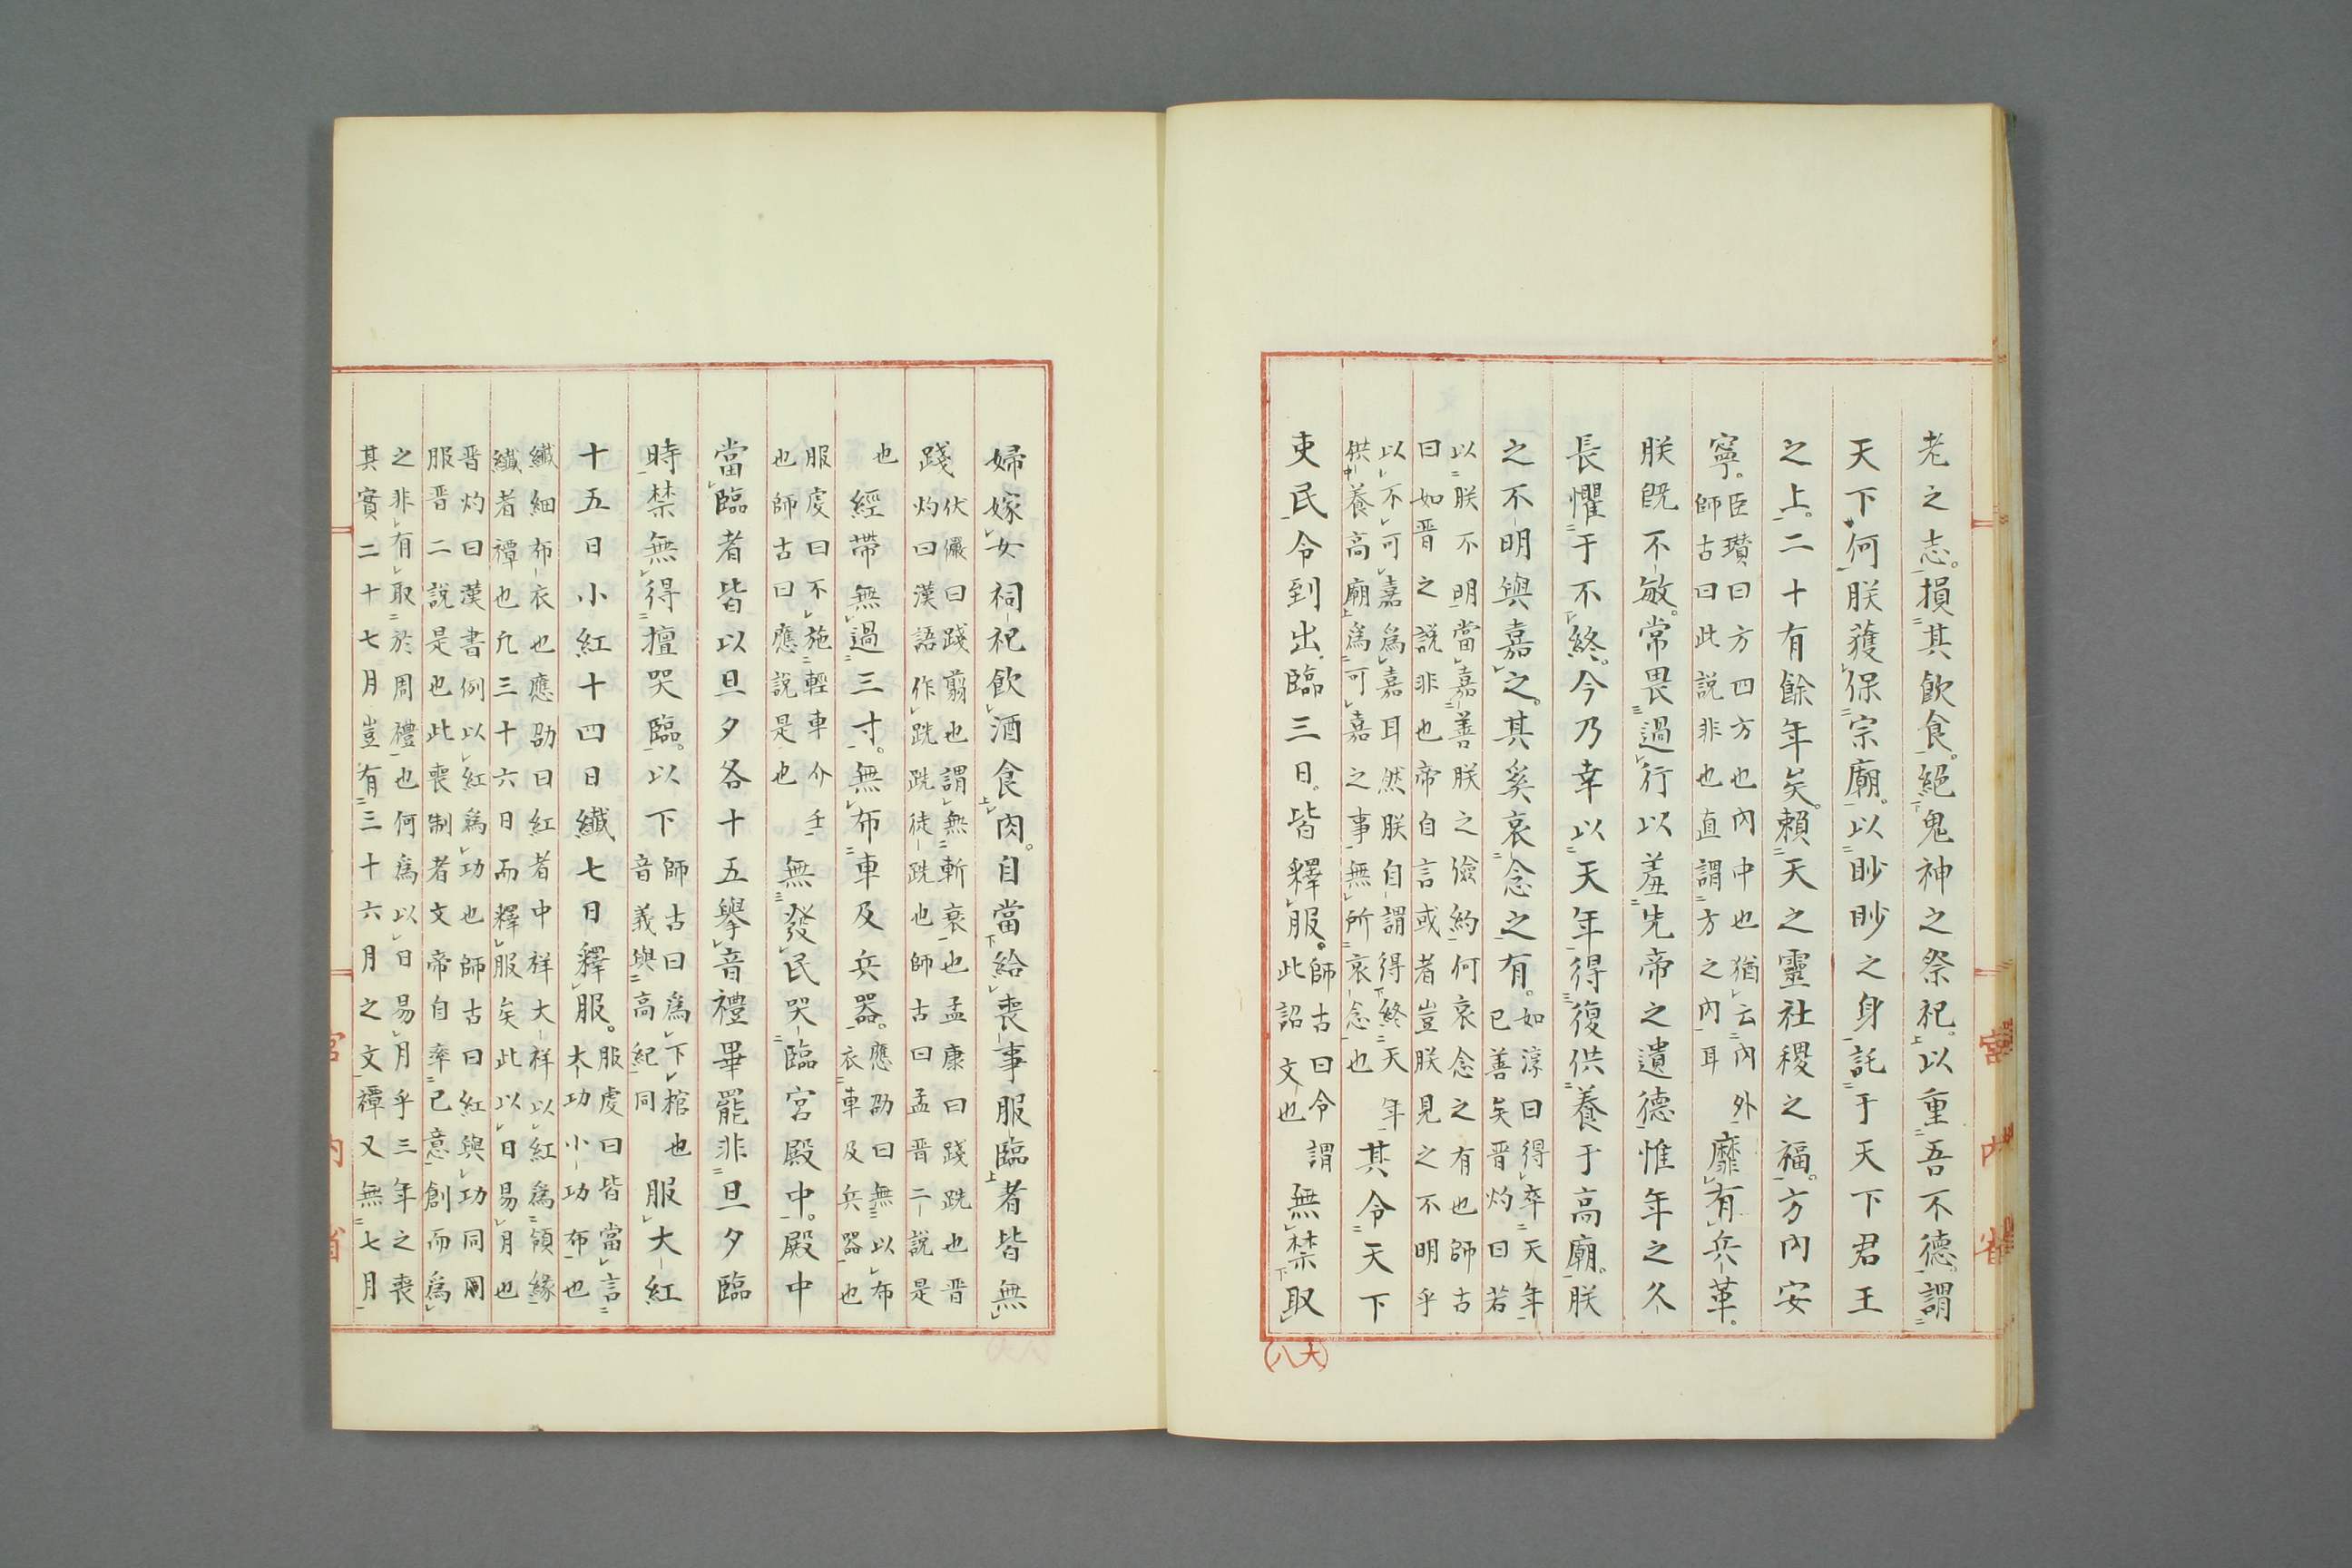 老之志損其飲食絕鬼神之祭祀以重吾不德謂
天下何朕獲保宗廟以眇眇之身託于天下君王
之上二十有餘年矣賴天之靈社稷之福方內安
寧臣瓚曰方四方也內中也猶云內外
師古曰此說非也直謂方之內耳
靡有兵革
朕既不敏常畏過行以羞先帝之遺德惟年之久
長懼于不終今乃幸以天年得復供養于高廟朕
之不明與嘉之其奚哀念之有如淳曰得卒天年
已善矣晉灼曰若
以朕不明當嘉善朕之儉約何哀念之有也師古
曰如晉之說非也帝自言或者豈朕見之不明乎
以不可嘉為嘉耳然朕自謂得終天年
供養高廟為可嘉之事無所哀念也
其令天下
吏民令到出臨三日皆釋服師古曰令謂
此詔文也
無禁取
(八大)
宮內省
婦嫁女祠祀飲酒食肉自當給喪事服臨者皆無
踐伏儼曰踐翦也謂無斬衰也孟康曰踐跣也晉
灼曰漢語作跣跣徒跣也師古曰孟晉二說是
也
絰帶無過三寸無布車及兵器應劭曰無以布
衣車及兵器也
服虔曰不施輕車介士
也師古曰應說是也
無發民哭臨宮殿中殿中
當臨者皆以旦夕各十五舉音禮畢罷非旦夕臨
時禁無得擅哭臨以下師古曰為下棺也
音義與高紀同
服大紅
十五日小紅十四日纖七日釋服服虔曰皆當言
大功小功布也
纖細布衣也應劭曰紅者中祥大祥以紅為領緣
纖者禫也凡三十六日而釋服矣此以日易月也
晉灼曰漢書例以紅為功也師古曰紅與功同
服晉二說是也此喪制者文帝自率己意創而為
之非有取於周禮也何為以日易月乎三年之喪
其實二十七月豈有三十六月之文禫又無七月
宮內省